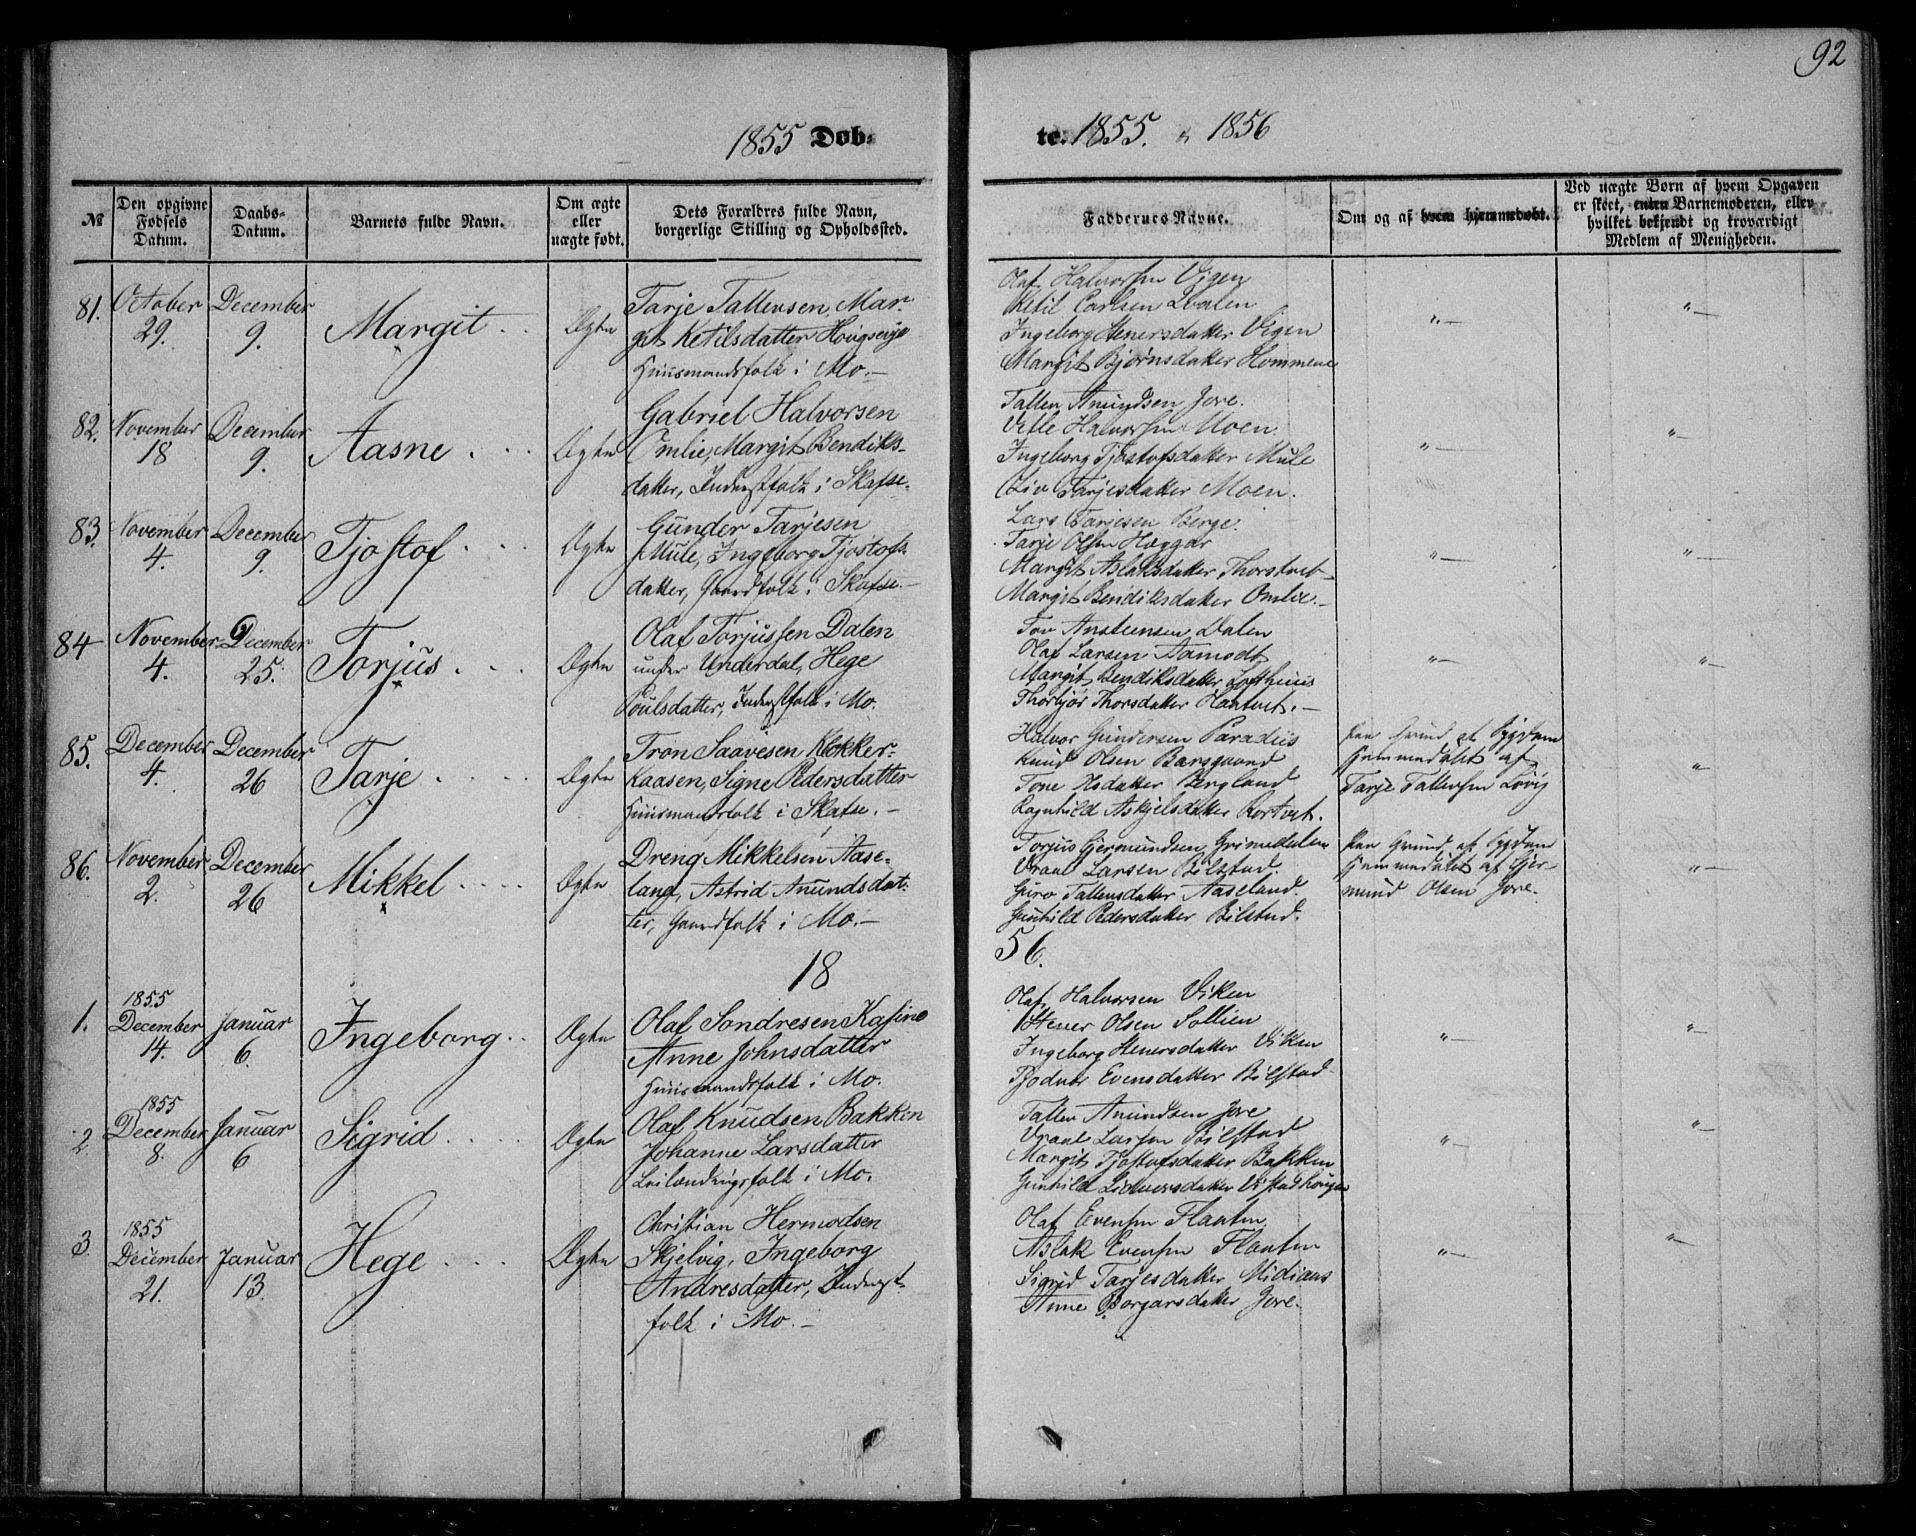 92
1855 Døb-
te. 1855. & 1856
№
Den opgivne Fødsels Datum.
Daabs-Datum.
Barnets fulde Navn.
Om ægte eller uægte født.
Dets Forældres fulde Navn, borgerlige Stilling og Opholdssted.
Faddernes Navne.
Om og af hvem hjemmedøbt.
Ved uægte Børn af hvem Opgaven er skeet, enten Barnemoderen, eller hvilket bekjendt og troværdigt Medlem af Menigheden.
81. October 29. December 9. Margit Ægte
Tarje Tallevsen, Mar-
git Ketilsdatter
Huusmandsfolk i Mo.
Olaf Halvorssen Vigen
Ketil Carlsen
Ingeborg Stenersdatter Vigen
Margit Bjørnsdatter Hommene
82. November 18 December 9. Aasne Ægte
Gabriel Halvorsen
Omlie, Margit Bendiks-
datter, Inderstfolk i Skafse.
Tallev Anundsen Jore.
Vetle Halvorssen Moen
Ingeborg Tjostofsdatter Mule
Liv Tarjesdatter Moen.
83. November 4. December 9. Tjostof Ægte
Gunder Tarjesen
Mule, Ingeborg Tjostofs-
datter, Gaardfolk i Skafse.
Lars Tarjesen Berge.
Tarje Olsen Hæggar
Margit Aslaksdatter Thorstvet
Margit Bendiksdatter Omlie.
84 November 4. December 25. Torjus Ægte
Olaf Torjussen Dalen
under Underdal, Hege
Poulsdatter, Inderstfolk i Mo.
Tov Anstensen Dalen
Olaf Larsen Aamodt
Margit Bendiksdatter Lofthuus
Thorbjør Thorsdatter Hantvet.
85. December 4. December 26 Tarje Ægte
Tron Saavesen Klokker-
kaasen, Signe Pedersdatter
Huusmandsfolk i Skafse.
Halvor Gundersen Paradiis
Knud Olsen Barsgaard
Tone Olsdatter Bergland
Ragnhild Askjelsdatter Rortvet.
paa Grund af Sygdom
hjemmedøbt af
Tarje Tallevssen Løvig
86. November 2. December 26 Mikkel Ægte
Dreng Mikkelsen Aase-
land, Astrid Anundsdat-
ter, Gaardfolk i Mo.
Torjus Gjermundsen Grimedalen
Vraal Larsen Bilstad.
Guro Tallevsdatter Aaseland.
Gunhild Pedersdatter Bilstad.
paa Grund af Sygdom
hjemmedøbt af Gjer-
mund Olsen Jore.
18
56.
1. 1855 December 14. Januar 6. Ingeborg Ægte
Olaf Sondresen Kasine
Anne Johnsdatter
Huusmandsfolk i Mo.
Olaf Halvorsen Viken
Stener Olsen Sollien
Ingeborg Stenersdatter Viken
Tjodvør Evensdatter Bilstad
2 1855 December 8. Januar 6 Sigrid Ægte
Olaf Knudsen Bakken
Johanne Larsdatter
Leilændingsfolk i Mo.
Tallev Anundsen Jore
Vraal Larsen Bilstad
Margit Tjostofsdatter Bakken
Gunhild Lidvorsdatter
3 1855 December 21. Januar 13. Hege Ægte
Christian Hermodsen
Skjelvig, Ingeborg
Andresdatter, Inderst-
folk i Mo.
Olaf Evensen Flaaten
Aslak Evensen Flaaten
Sigrid Tarjesdatter Midiaas
Anne Borgarsdatter Jore.